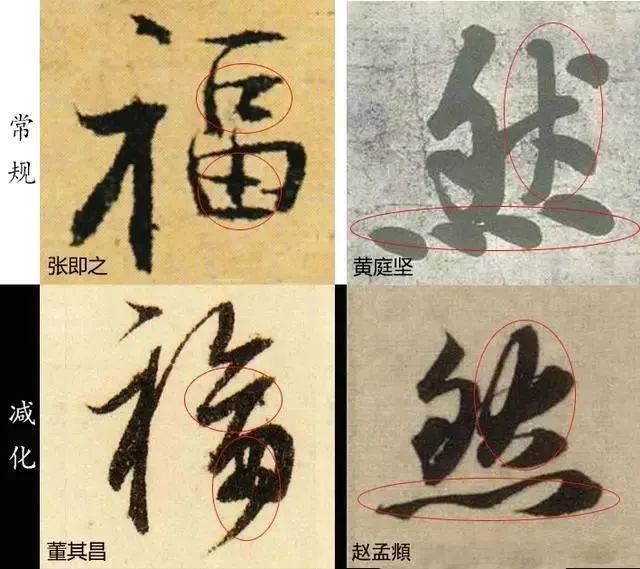 常规
福
张即之
然
黄庭坚
减化
福
董其昌
然
赵孟頫